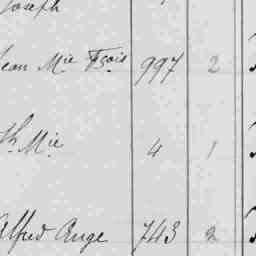 Joseph
Jean Mie Fçois 997 2
Th Mie 4 1
Alfred Ange 743 2